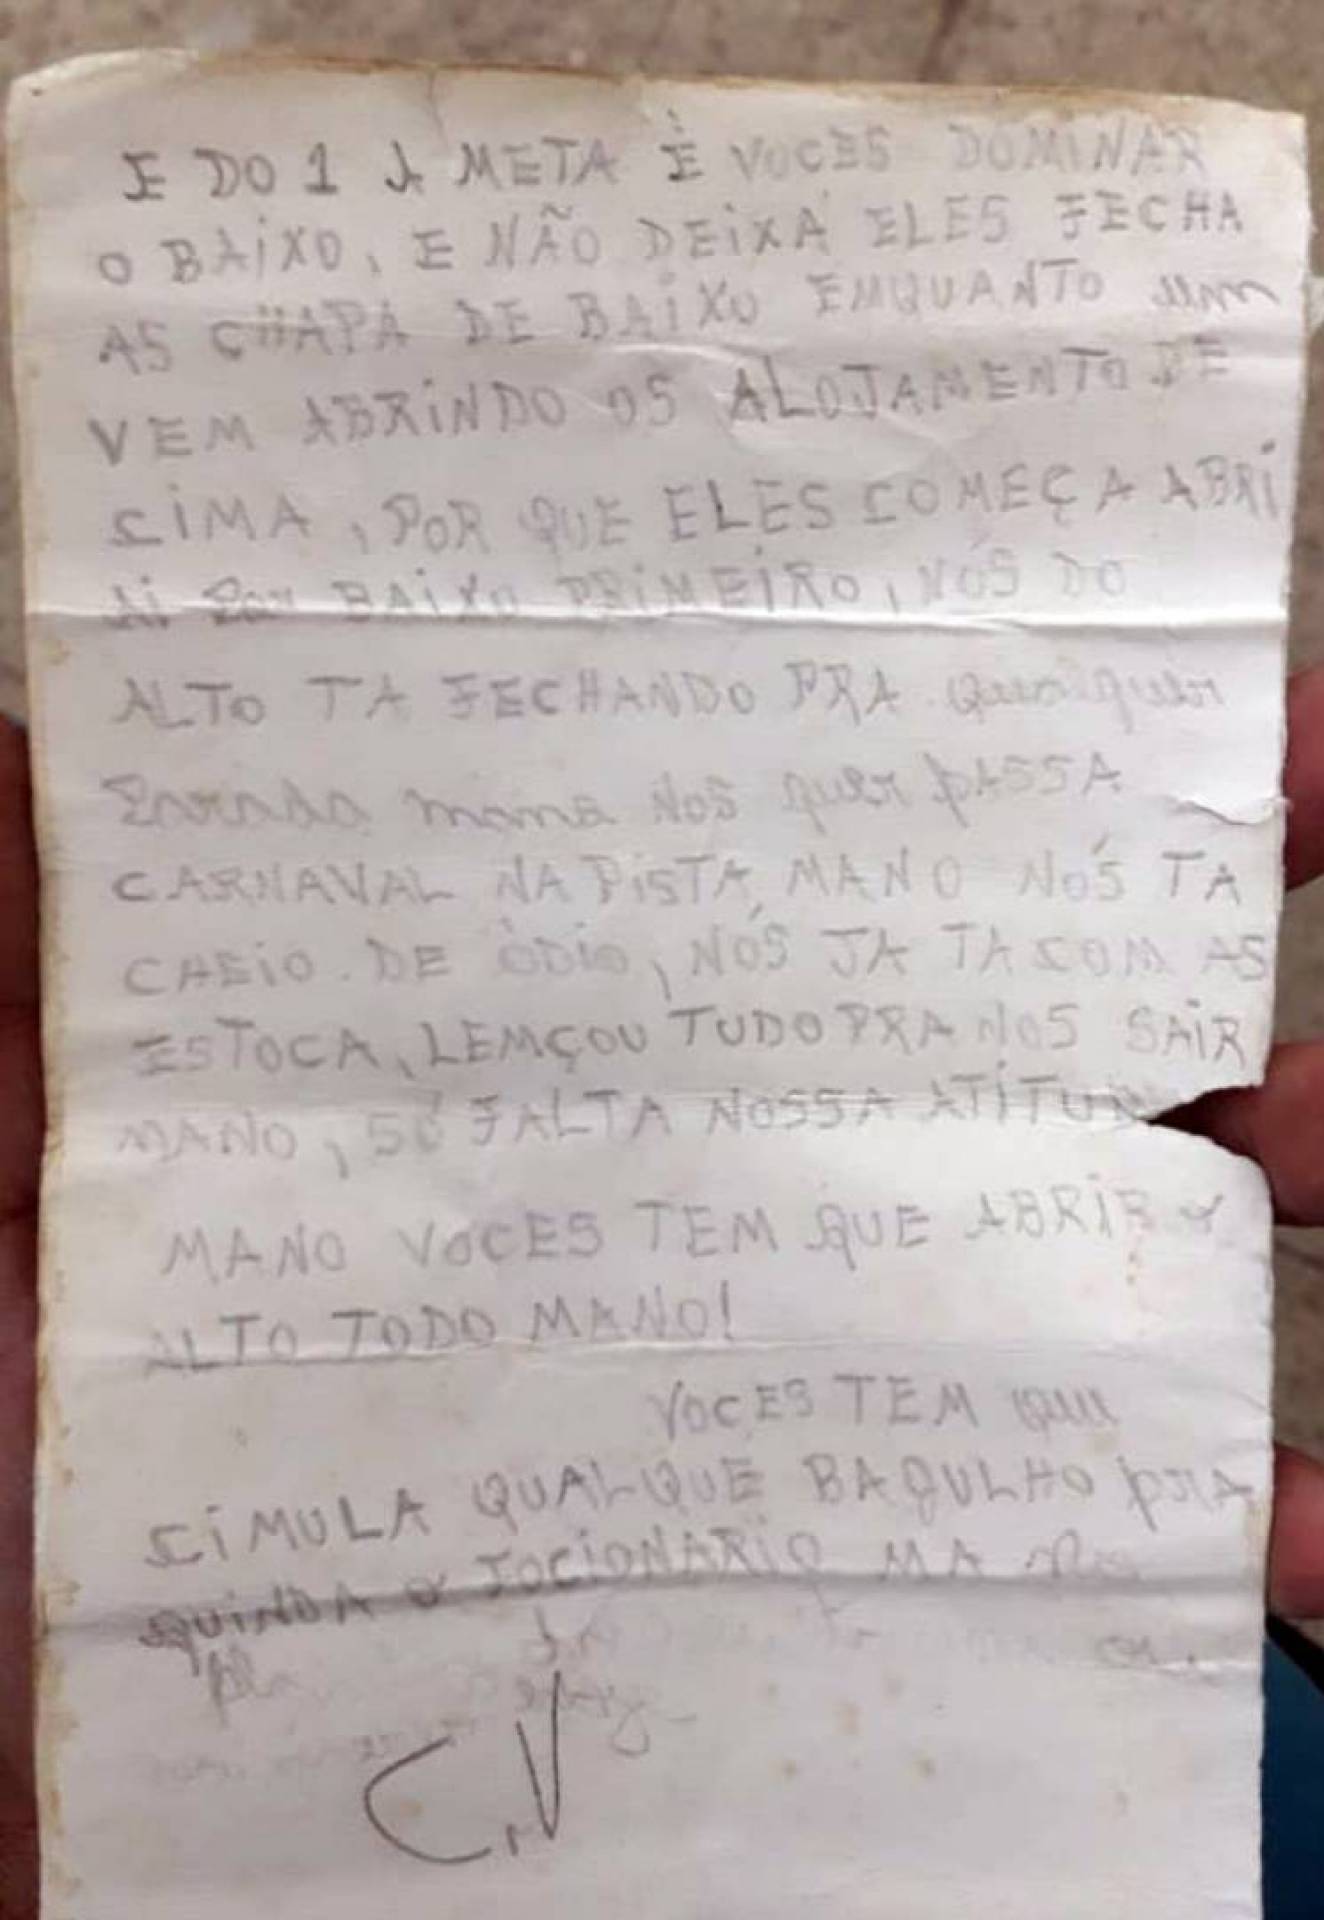 E DO 1 A META É VOCES DOMINAR
O BAIXO, E NÃO DEIXA ELES FECHA
AS CHAPA DE BAIXO ENQUANTO um
VEM ABRINDO OS ALOJAMENTO DE
CIMA, POR QUE ELES COMEÇA ABRI
Ai BAIXO PRIMEIRO, NÓS DO
ALTO TA FECHANDO PRA qualquer
mano NOS quer PASSA
CARNAVAL NA PISTA, MANO NÓS TA
CHEIO. DE ÓDIO, NÓS JA TA COM AS
ESTOCA, LEMÇOU TUDO PRA NOS SAIR
MANO, SÓ FALTA NOSSA
MANO VOCES TEM QUE ABRIR o
ALTO TODO MANO!
VOCES TEM que
SIMULA QUALQUE BAGULHO pra
quinda o FOCIONARIO
C.V